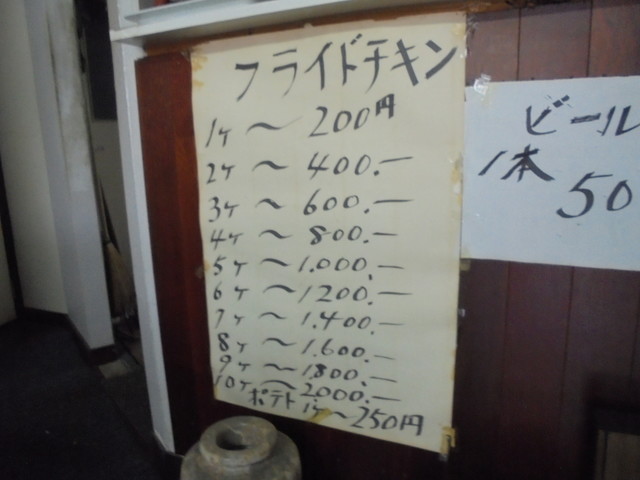 フライドチキン
1ヶ〜200円
2ヶ〜400.—
3ヶ〜600.—
4ヶ〜800.—
5ヶ〜1.000.—
6ヶ〜1200.—
7ヶ〜1.400.—
8ヶ〜1.600.—
9ヶ〜1.800.—
10ヶ〜2.000.—
ポテト1ヶ〜250円
ビール
1本
50